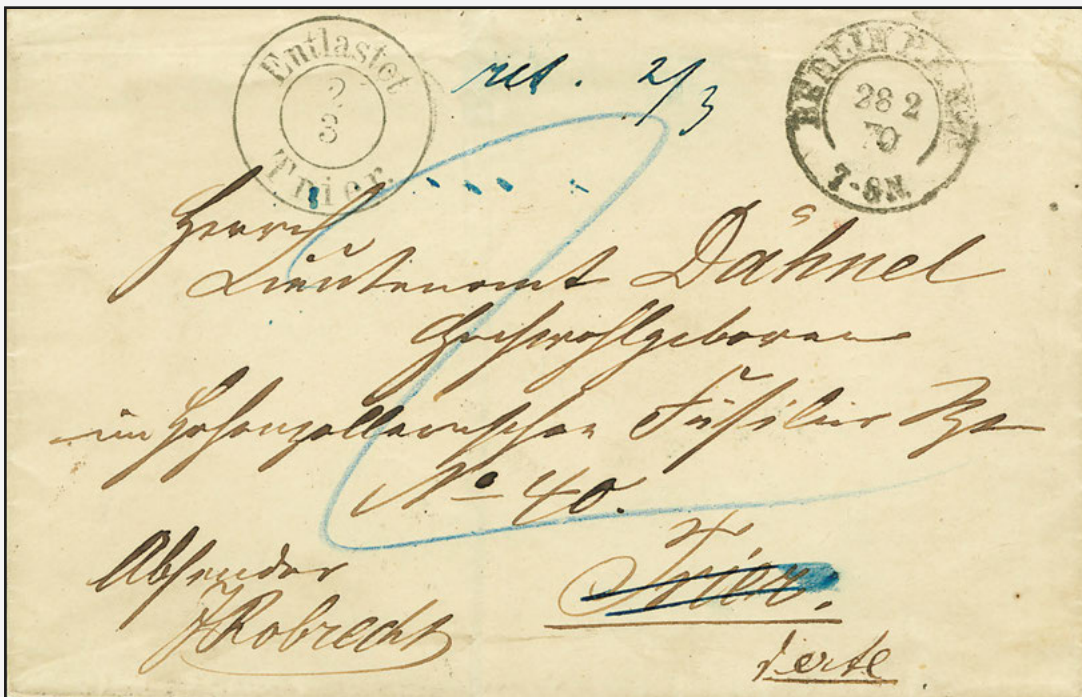 Entlastet
2
3
Trier.
ret. 2/3
BERLIN P.E.
28 2
70
7-8N.
Herrn
Lieutenant Dähnel
Hochwohlgeboren
im Hohenzollernschen Füsilier Rgt
No 40.
Absender
Robrecht
Trier.